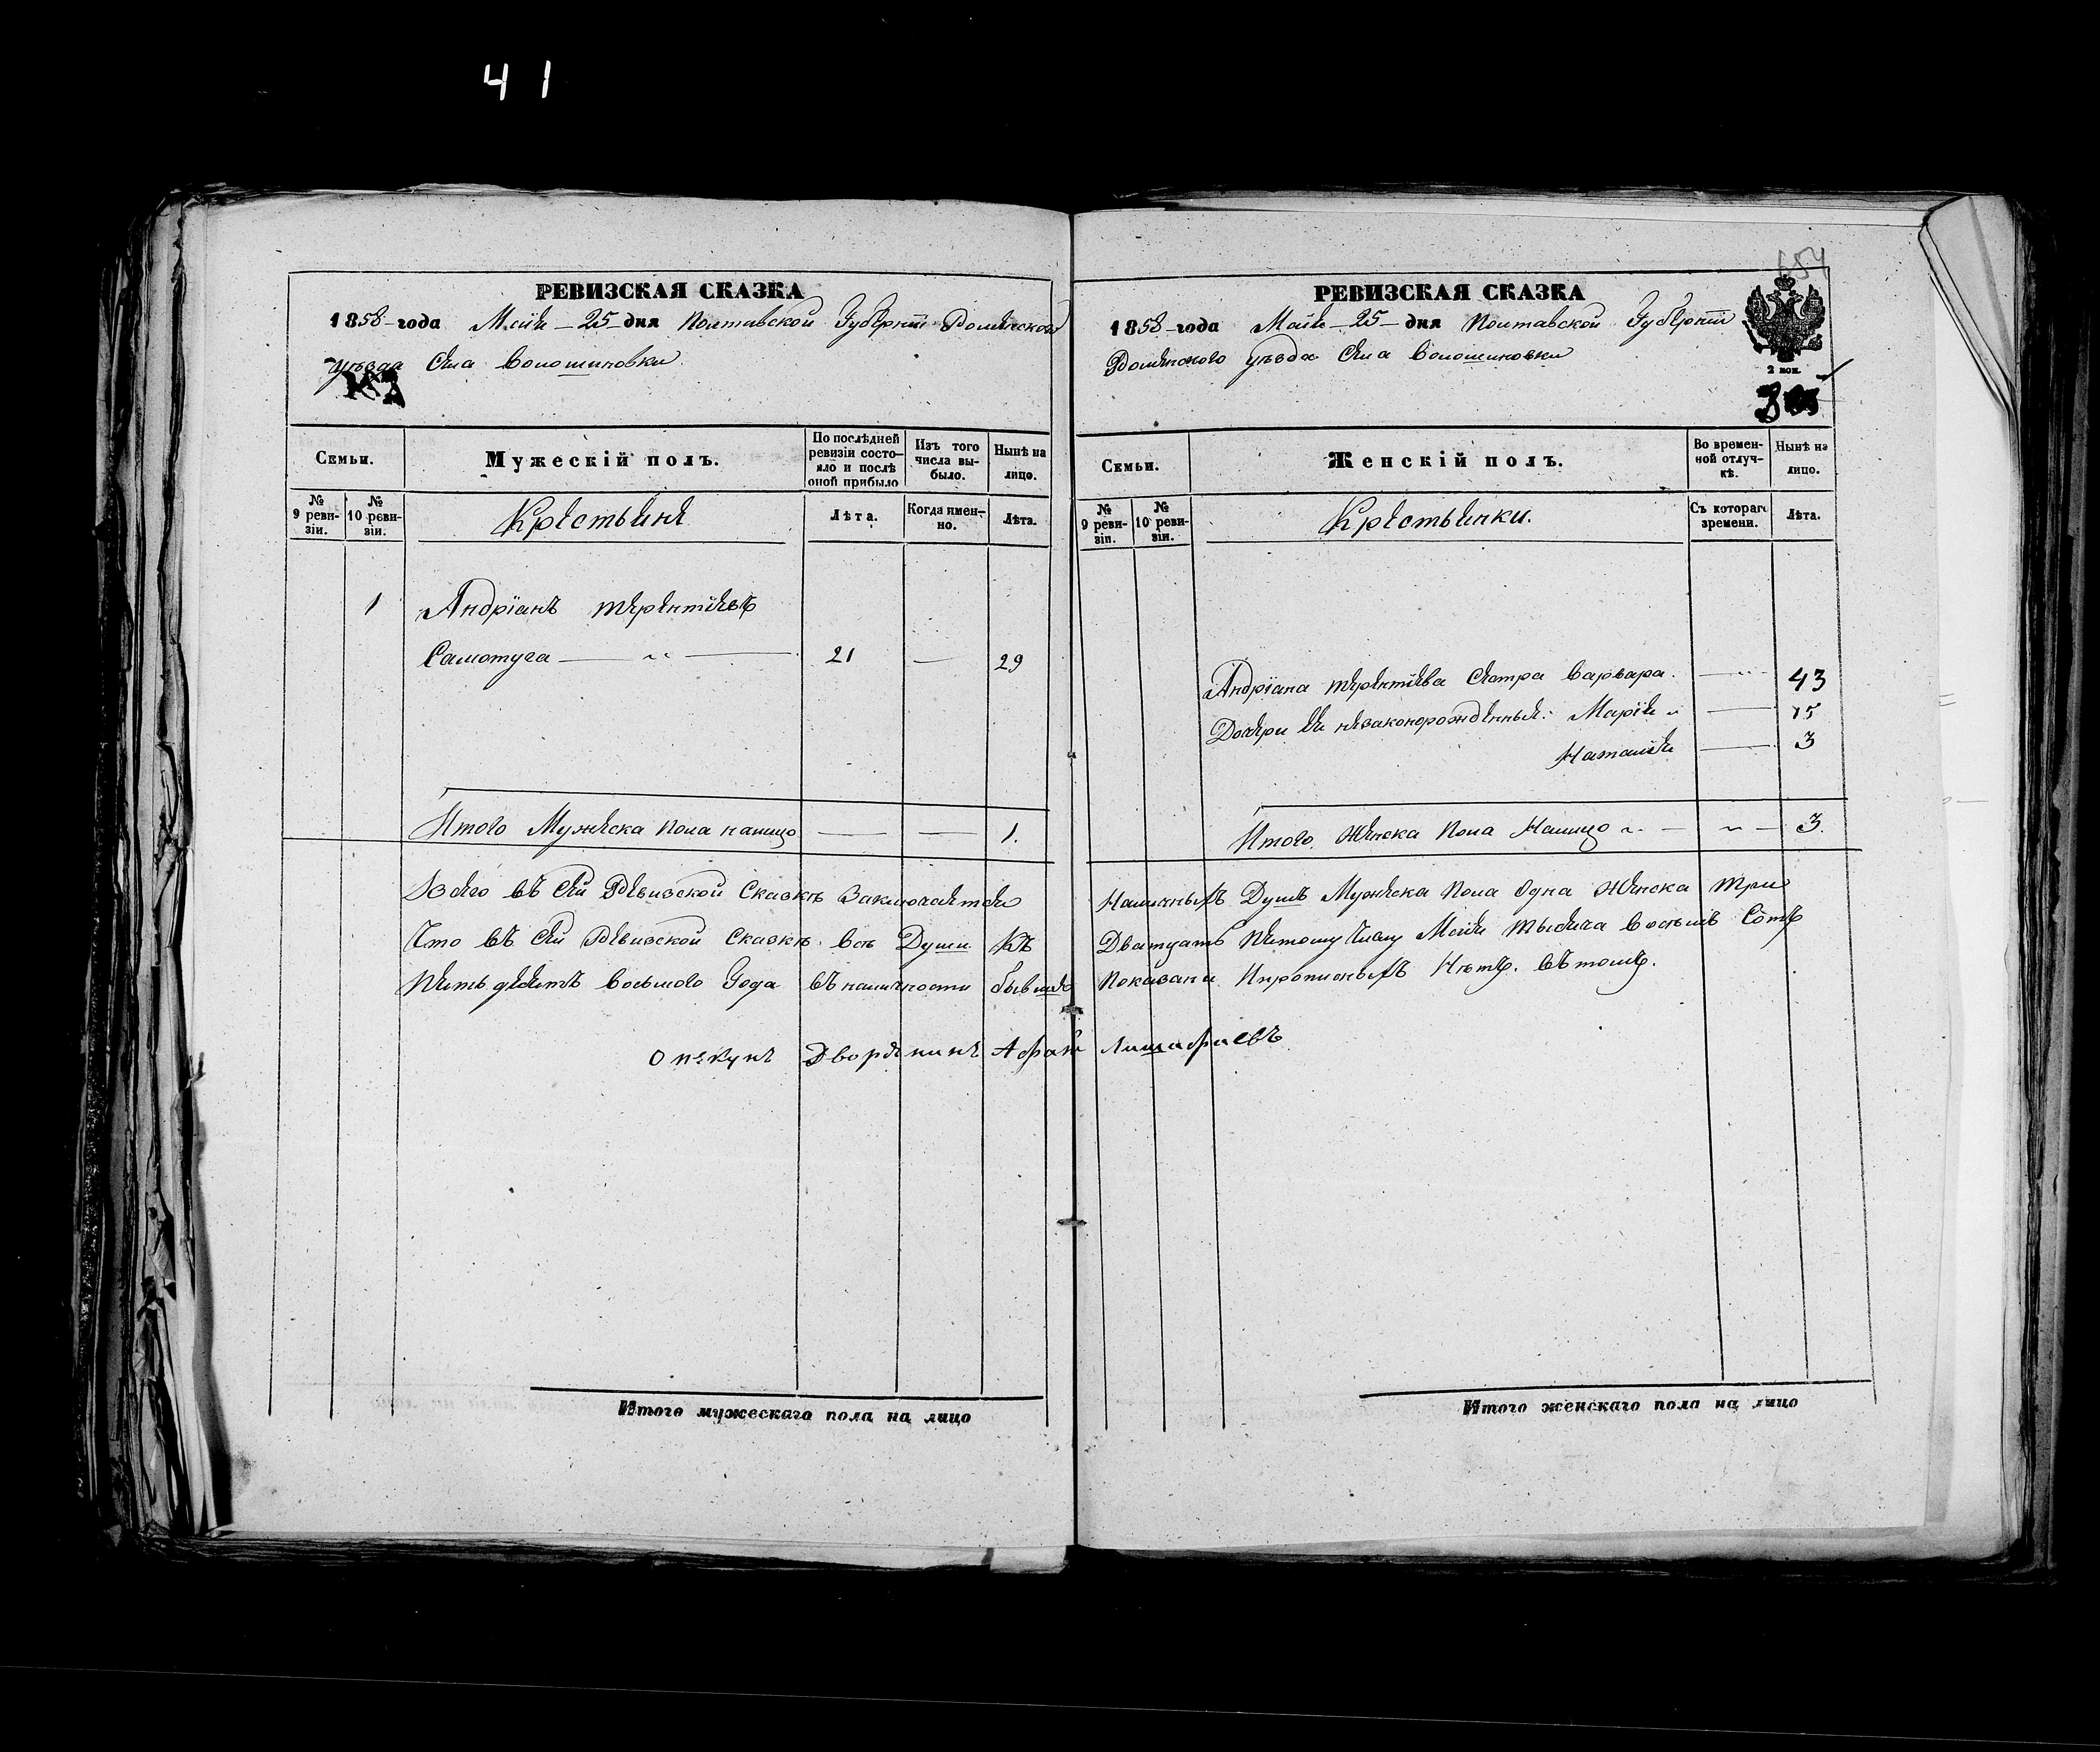 41
РЕВИЗСКАЯ СКАЗКА
1858 года Маія 25 дня Полтавской Губерніи Роменского
уѣзда Села Волошиновки
Семьи.
Мужескій полъ.
По послѣдней ревизіи состояло и послѣ оной прибыло
Изъ того числа выбыло.
Нынѣ на лицо.
№ 9 ревизіи.
№ 10 ревизіи.
Крестьяне
Лѣта.
Когда именно.
Лѣта.
1 Андріанъ Терентіевъ
Самотуга 21 — 29
Итого Мужеска пола налицо — — 1.
РЕВИЗСКАЯ СКАЗКА
1858 года Маія 25 дня Полтавской Губерніи
Роменского уѣзда Села Волошиновки
2 коп.
Семьи.
Женскій полъ.
Во временной отлучкѣ.
Нынѣ на лицо.
№ 9 ревизіи.
№ 10 ревизіи.
Крестьянки.
Съ котораго времени.
Лѣта.
Андріана Терентіева Сестра Варвара. — 43
Дочери Ея незаконорожденные: Марія — 15
Наталія — 3
Итого Женска пола Налицо — — 3.
Всего въ Сей Ревизской Сказкѣ Заключается Наличныхъ Душъ Мужеска пола Одна Женска три
Что въ Сей Ревизской Сказкѣ всѣ Души къ Двадцать Пятому Числу Маія Тысяча Восемь Сотъ
Пять десятъ восьмого Года въ наличности бывшіе Показаны Ипрописныхъ Нѣтъ. въ томъ.
Опекунъ Дворянинъ
Итого мужескаго пола на лицо
Итого женскаго пола на лицо